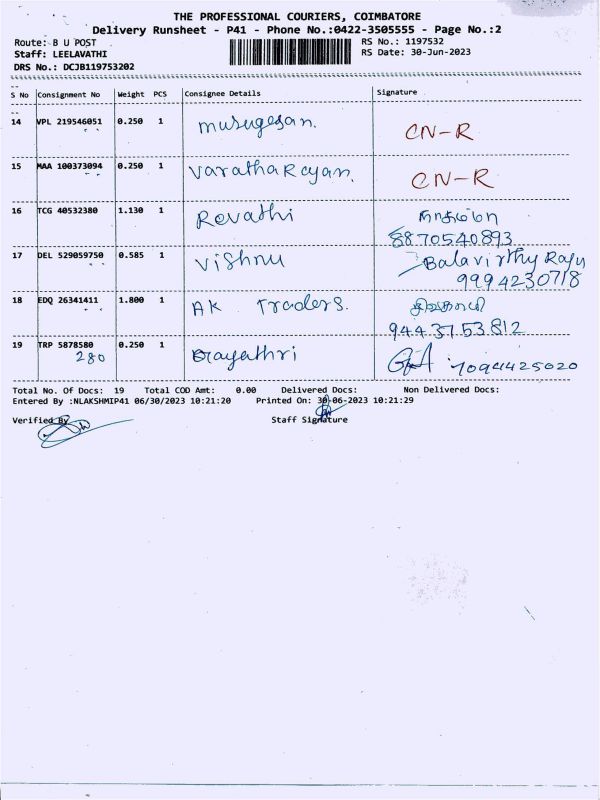 THE PROFESSIONAL COURIERS, COIMBATORE
Delivery Runsheet - P41 - Phone No.:0422-3505555 - Page No.:2
Route: B U POST
RS No.: 1197532
Staff: LEELAVATHI
RS Date: 30-Jun-2023
DRS No.: DCJB119753202
S No Consignment No Weight PCS Consignee Details Signature
14 VPL 219546051 0.250 1 Murugesan. CN-R
15 MAA 100373094 0.250 1 Varatharayan. CN-R
16 TCG 40532380 1.130 1 Revathi
8870540893
17 DEL 529059750 0.585 1 Vishnu Balavirthy Raju
9994230718
18 EDQ 26341411 1.800 1 AK Traders.
9443753812
19 TRP 5878580 0.250 1 Gayathri 7094425020
280
Total No. Of Docs: 19 Total COD Amt: 0.00 Delivered Docs: Non Delivered Docs:
Entered By :NLAKSHMIP41 06/30/2023 10:21:20 Printed On: 30-06-2023 10:21:29
Verified By Staff Signature